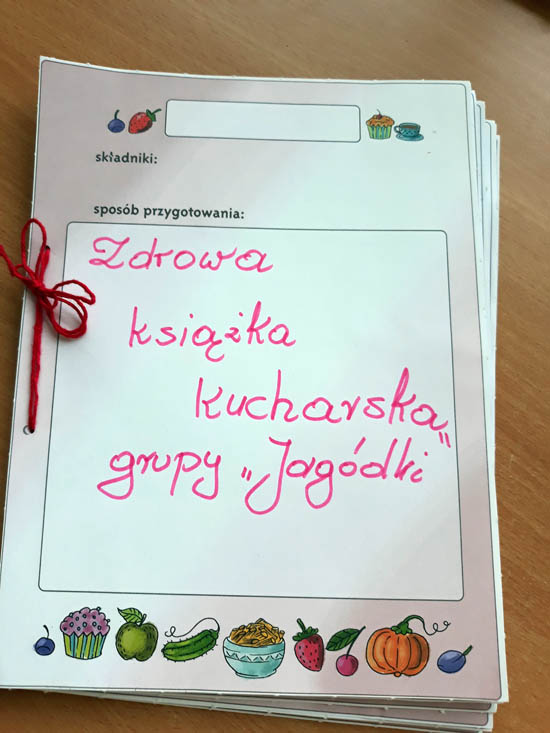 składniki:
sposób przygotowania:
Zdrowa
książka
kucharska
grupy „Jagódki”